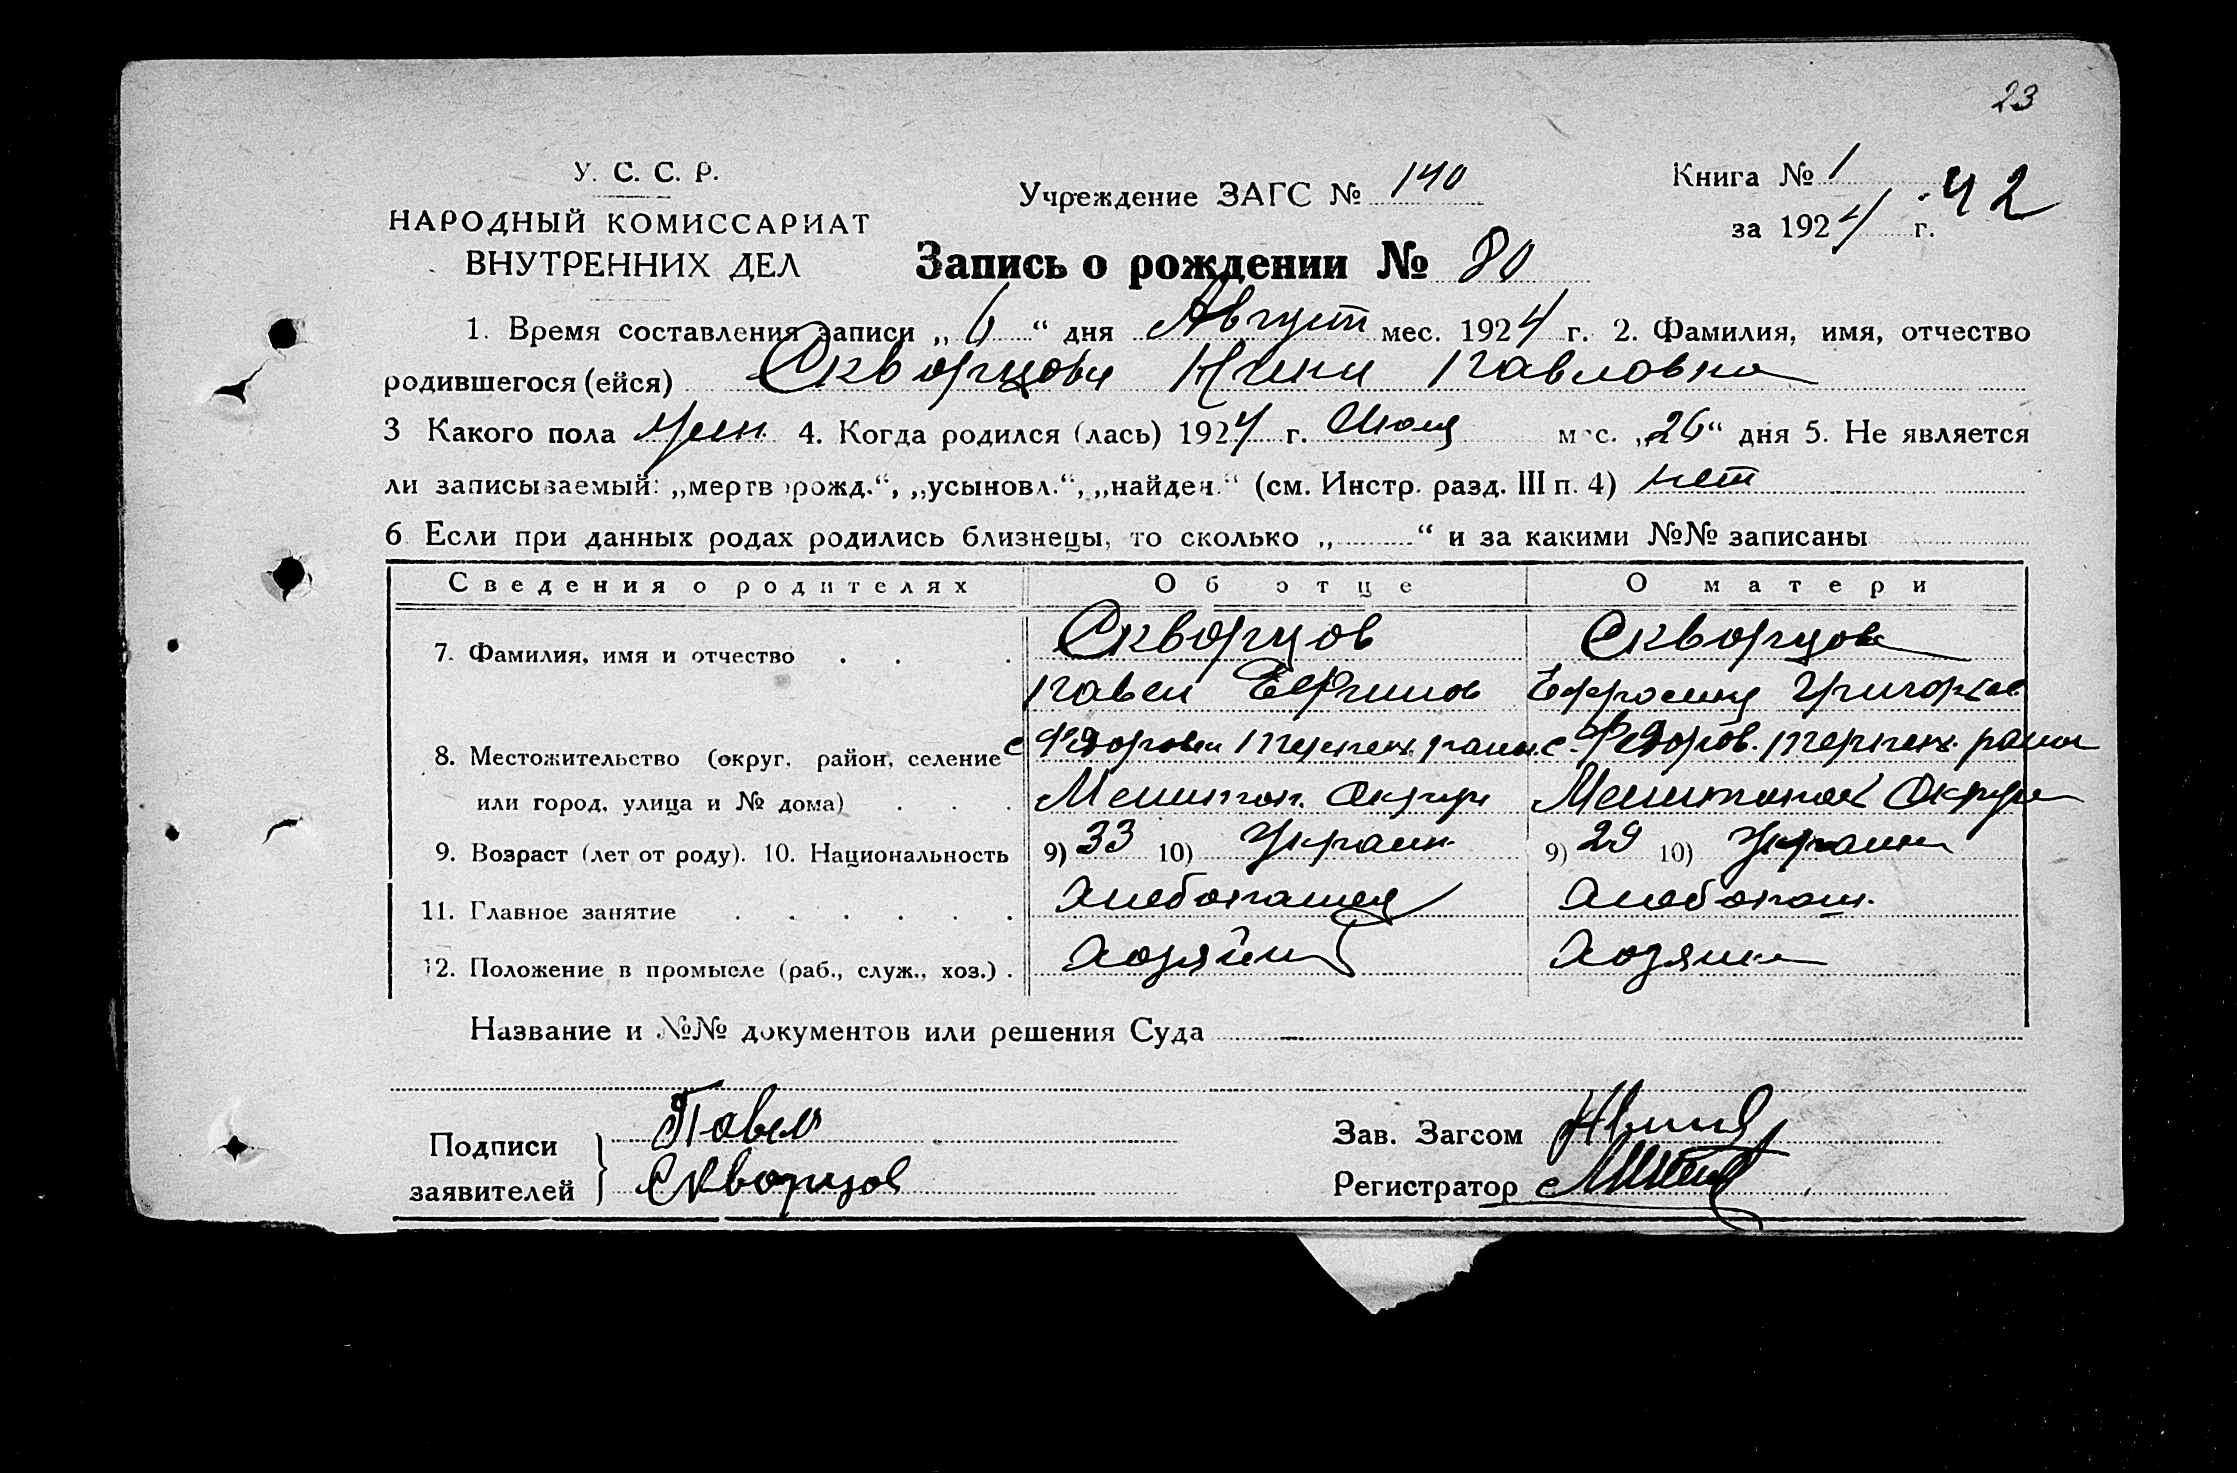 23
У. С. С. Р.
НАРОДНЫЙ КОМИССАРИАТ
ВНУТРЕННИХ ДЕЛ
Учреждение ЗАГС № 140
Книга № 1
42
за 1924 г.
Запись о рождении № 80
1. Время составления записи „ 6 “ дня Август мес. 1924 г. 2. Фамилия, имя, отчество
родившегося (ейся) Скворцова Нина Павловна
3 Какого пола жен. 4. Когда родился (лась) 1924 г. Июля мес. „26“ дня 5. Не является
ли записываемый: „мертворожд.“, „усыновл.“, „найден.“ (см. Инстр. разд. III п. 4) нет
6 Если при данных родах родились близнецы, то сколько „ “ и за какими №№ записаны
Сведения о родителях Об отце О матери
7. Фамилия, имя и отчество Скворцов Скворцова
Павел Ефимов Ефросиния Григорьев
8. Местожительство (округ, район, селение с Федоровки район с. Федоров. район
или город, улица и № дома) Мелитоп. Округ Мелитополь Округ
9. Возраст (лет от роду). 10. Национальность 9) 33 10) Украин. 9) 29 10) Украин
11. Главное занятие Хлебопашец Хлебопаш.
12. Положение в промысле (раб., служ., хоз.) Хозяин Хозяйка
Название и №№ документов или решения Суда
Подписи Павел Зав. Загсом
заявителей Скворцов Регистратор